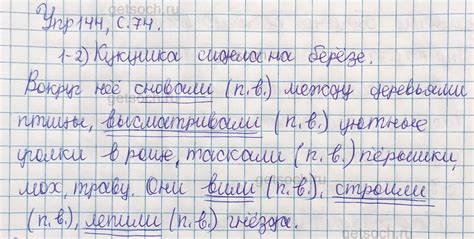 Упр 144, с. 74.
1-2) Кукушка сидела на берёзе.
Вокруг неё сновали (п.в.) между деревьями
птицы, высматривали (п.в.) уютные
уголки в роще, таскали (п.в.) пёрышки,
мох, траву. Они вили (п.в.), строили
(п.в.), лепили (п.в.) гнёзда.
getsoch.ru
getsoch.ru
getsoch.ru
getsoch.ru